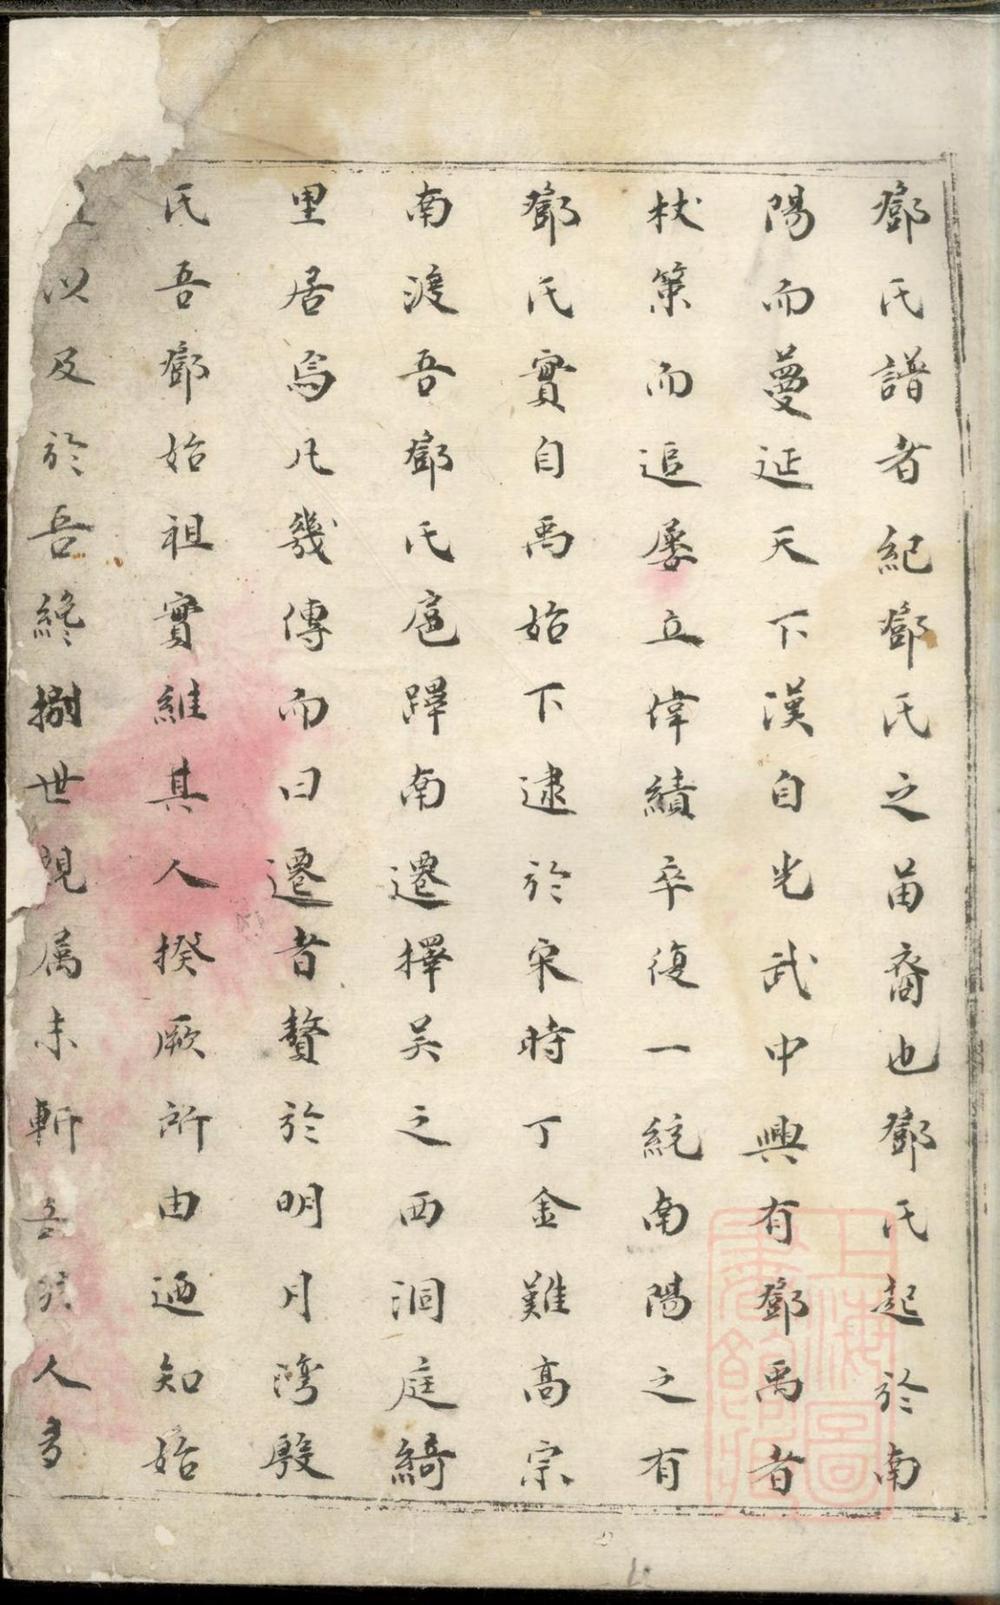 鄧氏譜者紀鄧氏之苗裔也鄧氏起於南
陽而蔓延天下漢自光武中興有鄧禹者
杖策而追孱立偉績卒復一統南陽之有
鄧氏實自禹始下逮於宋時丁金難高宗
南渡吾鄧氏扈蹕南遷擇吴之西洞庭綺
里居焉凡幾傳而曰遷者贅於明月灣殷
氏吾鄧始祖實維其人揆厥所由迺知始
以及於吾終捌世現属未軒吾然人多
上海圖書館藏